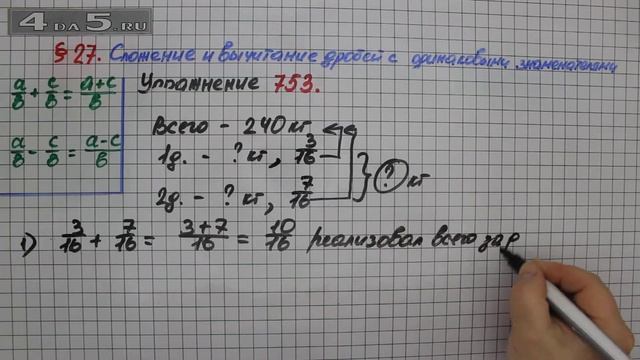 4 DA 5.RU
§ 27. Сложение и вычитание дробей с одинаковыми знаменателями
a/b + c/b = a+c/b
a/b - c/b = a-c/b
Упражнение 753.
Всего - 240 кг
1д. - ? кг, 3/16
2д. - ? кг, 7/16
} ? кг
1) 3/16 + 7/16 = 3+7/16 = 10/16 реализовал всего за